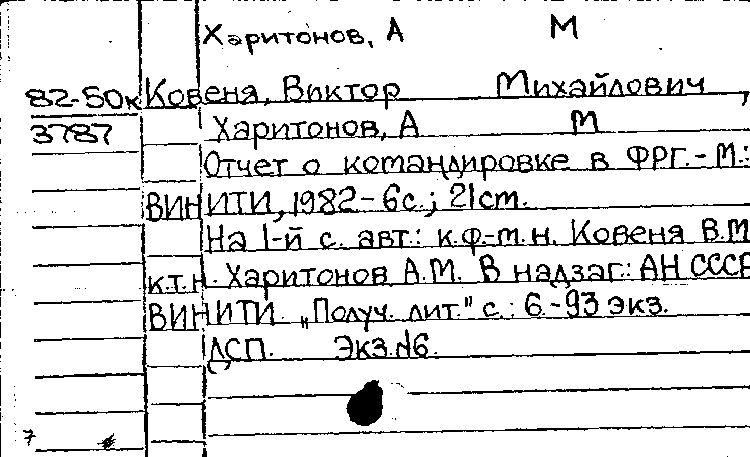 Харитонов, А М
82-50к Ковеня, Виктор Михайлович,
3787 Харитонов, А М
Отчет о командировке в ФРГ.- М.:
ВИНИТИ, 1982.- 6с.; 21см.
На 1-й с. авт.: к.ф.-м.н. Ковеня В.М.
к.т.н. Харитонов А.М. В надзаг.: АН СССР
ВИНИТИ. „Получ. лит." с.: 6.- 93 экз.
ДСП. Экз.№6.
7